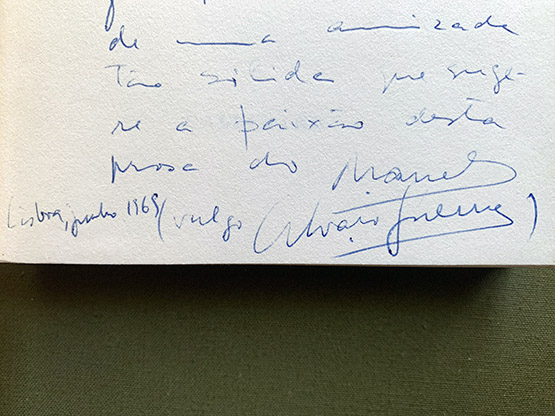 de uma amizade
tão sólida que suge-
re a paixão desta
prosa do Manel
Lisboa, junho 1969 (vulgo Álvaro Guerra)